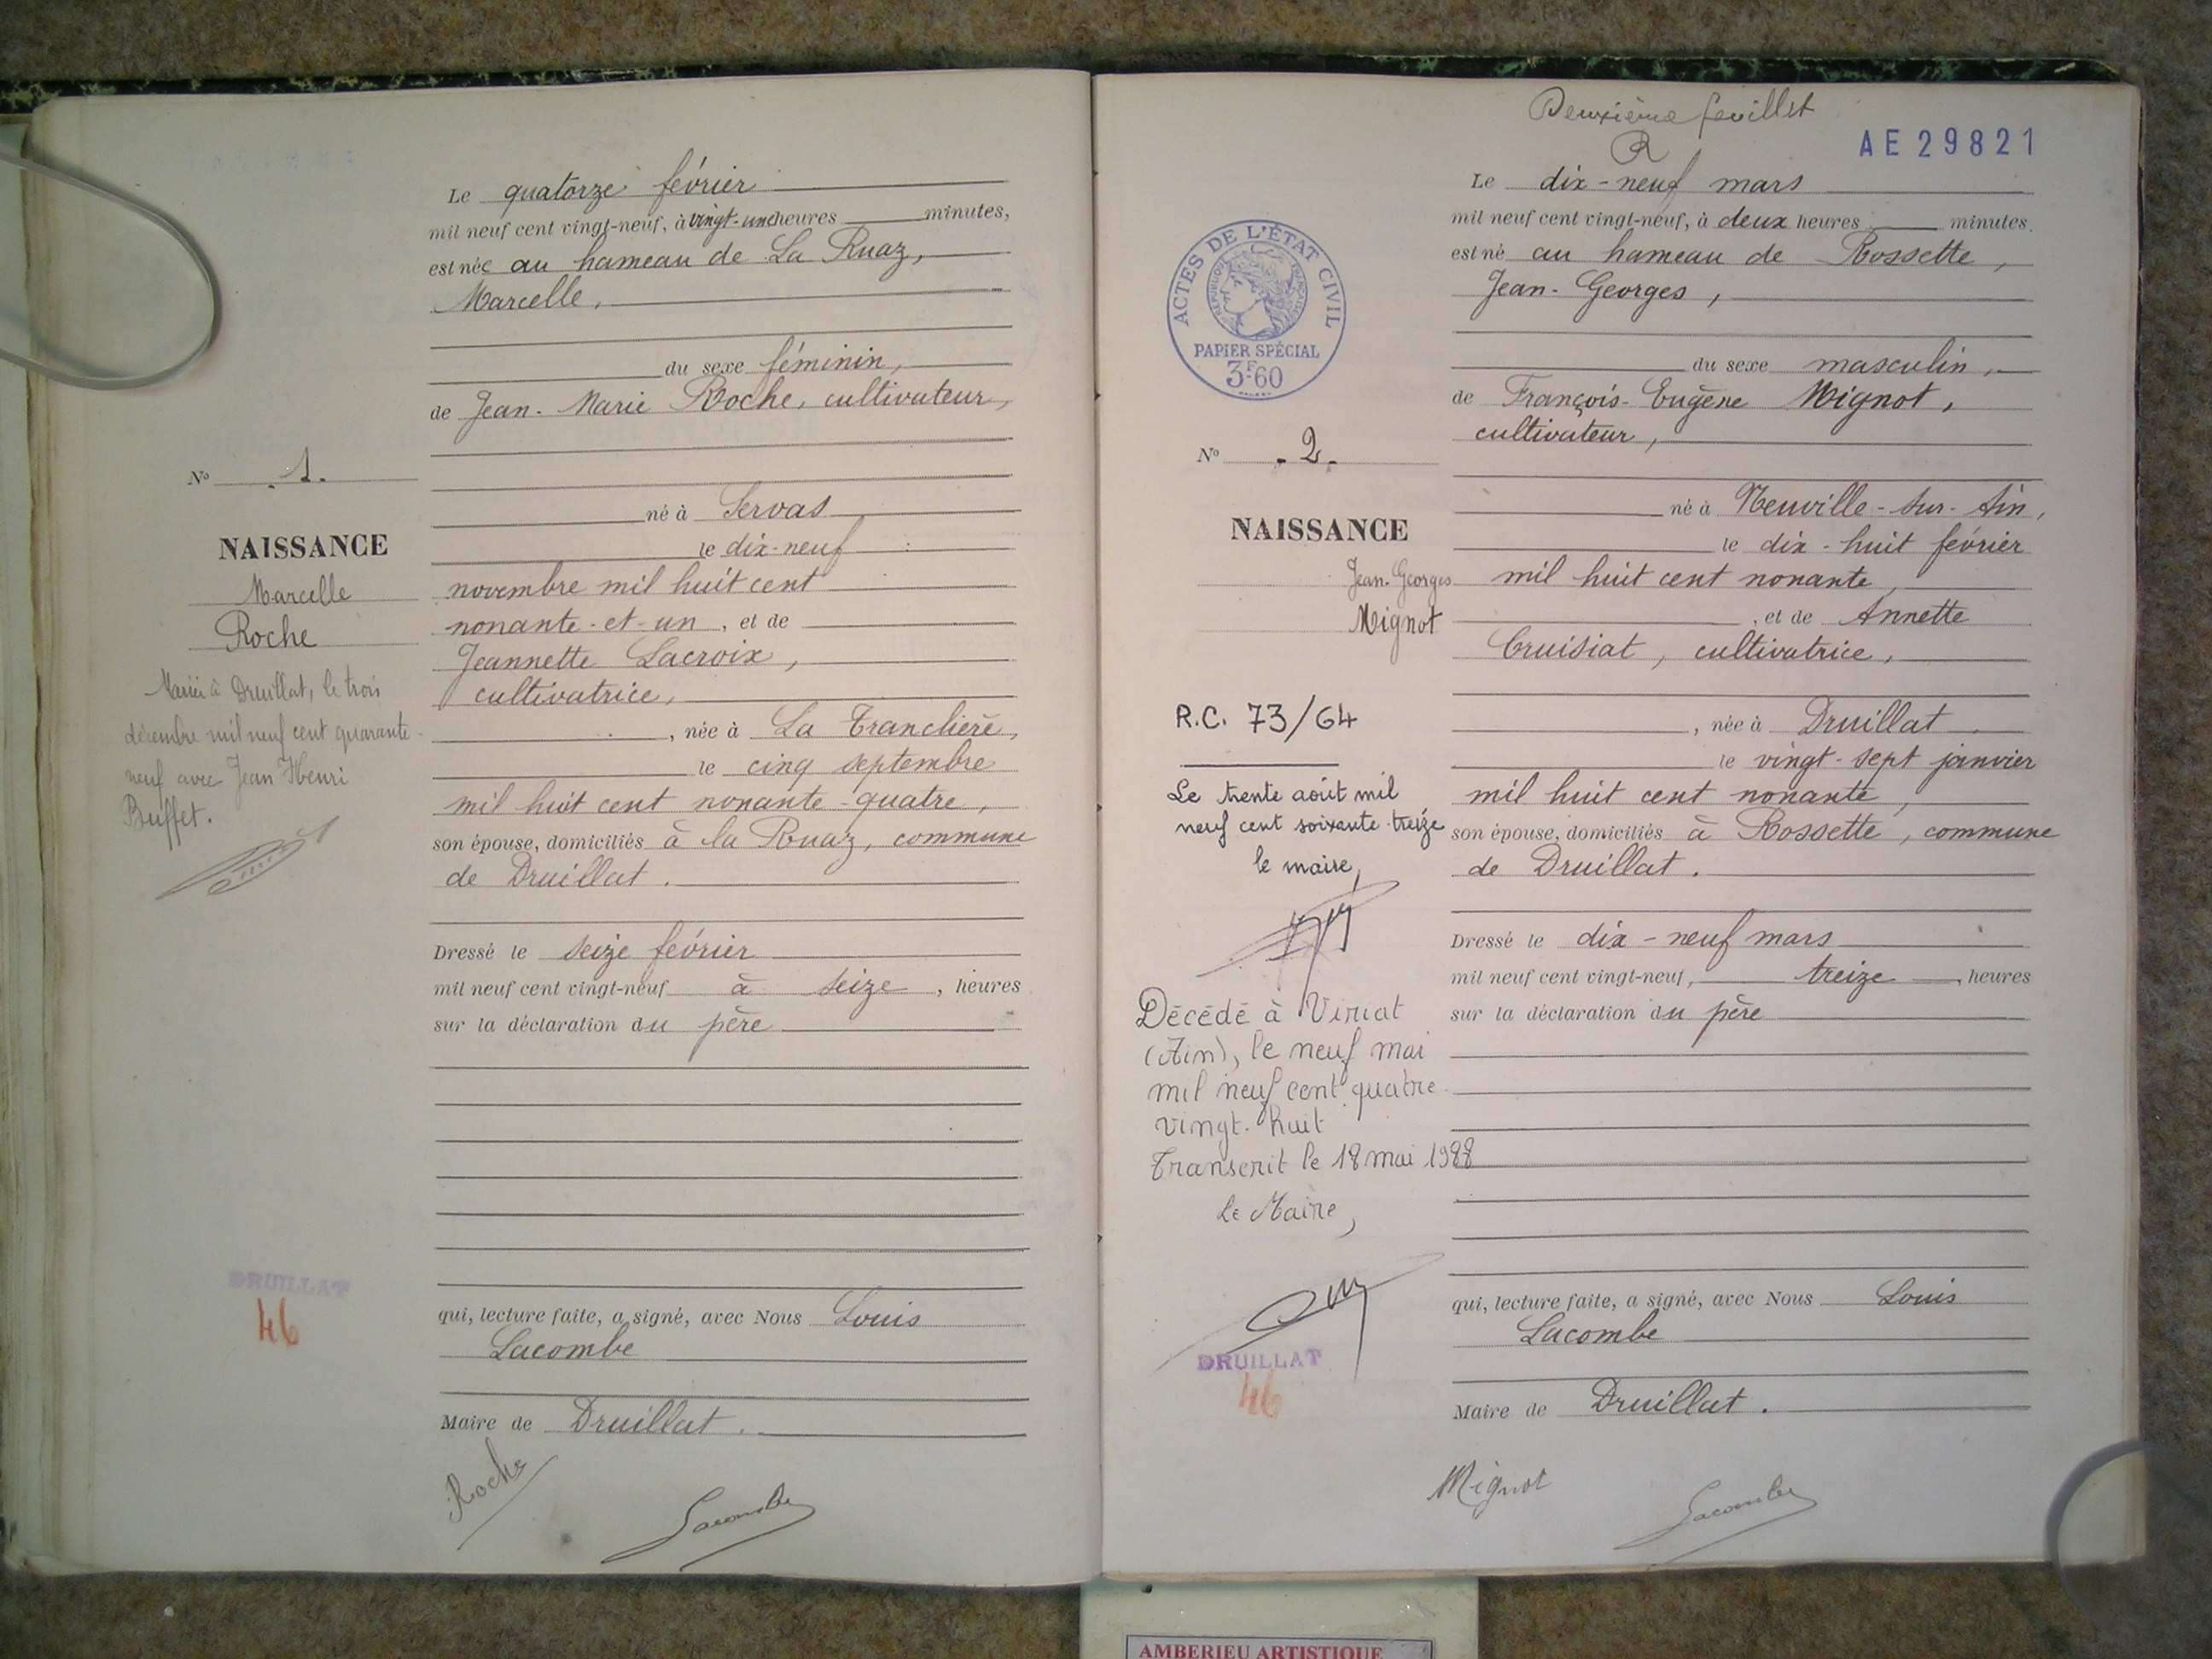 Le quatorze février
mil neuf cent vingt-neuf, à vingt-une heures minutes,
est née au hameau de La Ruaz,
Marcelle,
du sexe féminin,
de Jean-Marie Roche, cultivateur,
né à Servas
le dix-neuf
novembre mil huit cent
nonante-et-un, et de
Jeannette Lacroix,
cultivatrice,
, née à La Tranclière,
le cinq septembre
mil huit cent nonante-quatre,
son épouse, domiciliés à la Ruaz, commune
de Druillat.
Dressé le seize février
mil neuf cent vingt-neuf à seize, heures
sur la déclaration du père
qui, lecture faite, a signé, avec Nous Louis
Lacombe
Maire de Druillat.
Roche
Lacombe
No .1.
NAISSANCE
Marcelle
Roche
Mariée à Druillat, le trois
décembre mil neuf cent quarante-
neuf avec Jean Henri
Buffet.
DRUILLAT
46
Deuxième feuillet
R
AE 29821
Le dix-neuf mars
mil neuf cent vingt-neuf, à deux heures minutes.
est né au hameau de Rossette,
Jean-Georges,
du sexe masculin,
de François-Eugène Mignot,
cultivateur,
né à Neuville-sur-Ain,
le dix-huit février
mil huit cent nonante,
, et de Annette
Cruisiat, cultivatrice,
, née à Druillat
le vingt-sept janvier
mil huit cent nonante,
son épouse, domiciliés à Rossette, commune
de Druillat.
Dressé le dix-neuf mars
mil neuf cent vingt-neuf, treize, heures
sur la déclaration du père
qui, lecture faite, a signé, avec Nous Louis
Lacombe
Maire de Druillat.
Mignot
Lacombe
ACTES DE L'ÉTAT CIVIL
RÉPUBLIQUE FRANÇAISE
PAPIER SPÉCIAL
3F60
No .2.
NAISSANCE
Jean-Georges
Mignot
R.C. 73/64
Le trente août mil
neuf cent soixante-treize
le maire,
Décédé à Viriat
(Ain), le neuf mai
mil neuf cent quatre-
vingt-huit
Transcrit le 18 mai 1988
Le Maire,
DRUILLAT
46
AMBERIEU ARTISTIQUE